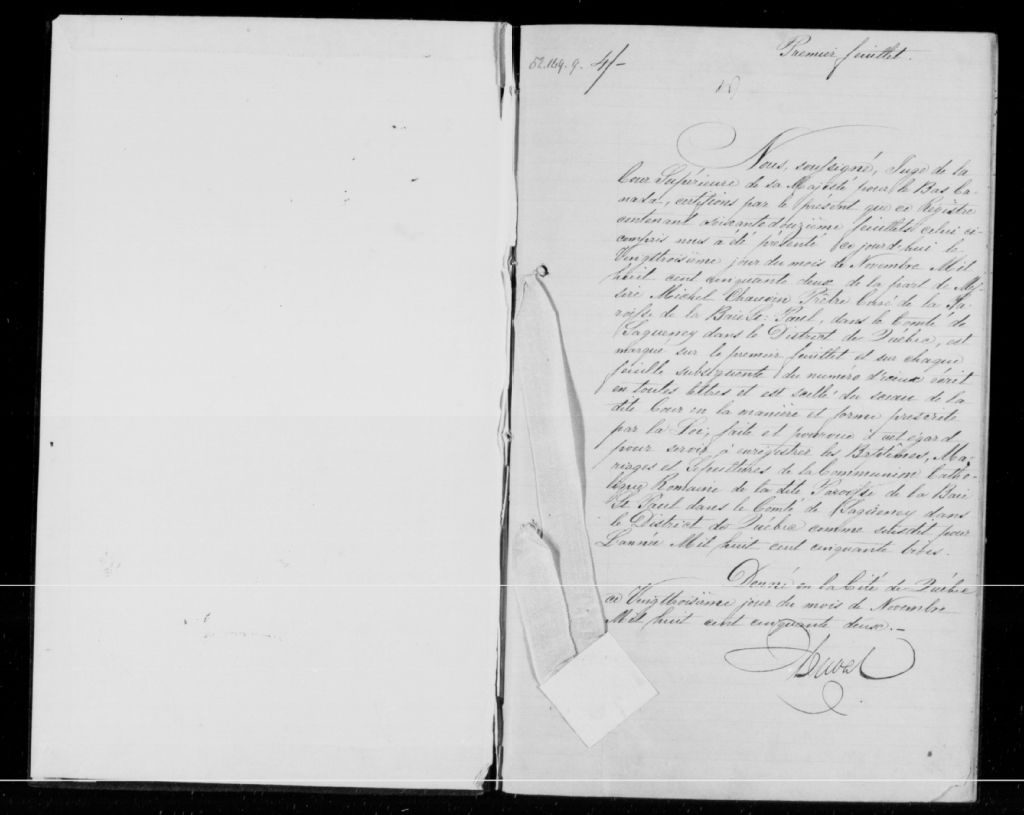 52.164.9. 4/-
Premier feuillet.
Nous, soussigné, Juge de la
Cour Supérieure de sa Majesté pour le Bas Ca-
nada, certifions par le présent que ce Régistre
contenant soixante douzième feuillets celui ci
compris nous a été présenté ce jourd'hui le
Vingttroisième jour du mois de Novembre Mil
huit cent cinquante deux de la part de Mes-
sire Michel Prêtre Curé de la Pa-
roisse de la Baie St. Paul, dans le Comté de
Saguenay dans le District de Québec, est
marqué sur le premier feuillet et sur chaque
feuille subséquente du numéro d'iceux écrit
en toutes lettres et est scellé du sceau de la
dite Cour en la manière et forme prescrite
par la Loi, faite et pourvue à cet égard
pour servir à enrégistrer les Baptêmes, Ma-
riages et Sépultures de la Communion Catho-
lique Romaine de la dite Paroisse de la Baie
St Paul dans le Comté de Saguenay dans
le District de Québec comme susdit pour
L'année Mil huit cent cinquante trois.
Donné en la Cité de Québec
ce Vingttroisième jour du mois de Novembre
Mil huit cent cinquante deux.-
Duval